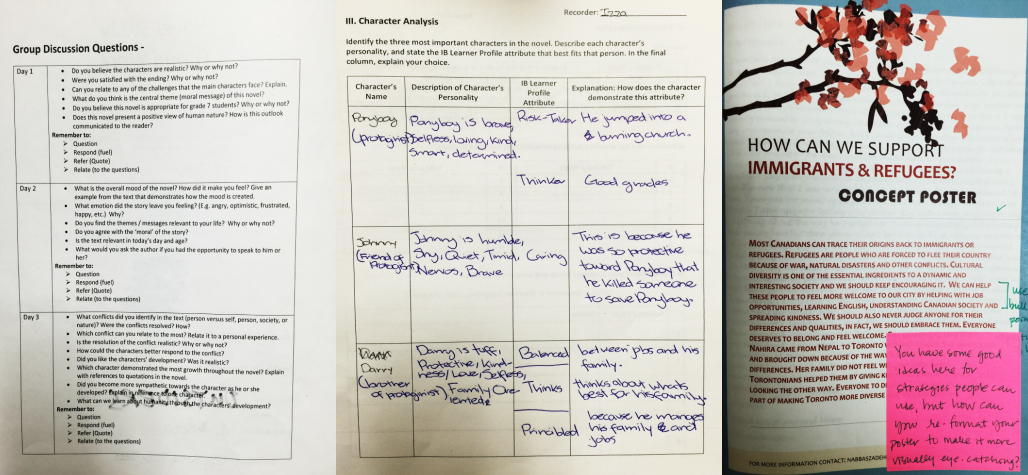 Group Discussion Questions -
Day 1
• Do you believe the characters are realistic? Why or why not?
• Were you satisfied with the ending? Why or why not?
• Can you relate to any of the challenges that the main characters face? Explain.
• What do you think is the central theme (moral message) of this novel?
• Do you believe this novel is appropriate for grade 7 students? Why or why not?
• Does this novel present a positive view of human nature? How is this outlook
communicated to the reader?
Remember to:
➢ Question
➢ Respond (fuel)
➢ Refer (Quote)
➢ Relate (to the questions)
Day 2
• What is the overall mood of the novel? How did it make you feel? Give an
example from the text that demonstrates how the mood is created.
• What emotion did the story leave you feeling? (E.g. angry, optimistic, frustrated,
happy, etc.) Why?
• Do you find the themes / messages relevant to your life? Why or why not?
• Do you agree with the 'moral' of the story?
• Is the text relevant in today's day and age?
• What would you ask the author if you had the opportunity to speak to him or
her?
Remember to:
➢ Question
➢ Respond (fuel)
➢ Refer (Quote)
➢ Relate (to the questions)
Day 3
• What conflicts did you identify in the text (person versus self, person, society, or
nature)? Were the conflicts resolved? How?
• Which conflict can you relate to the most? Relate it to a personal experience.
• Is the resolution of the conflict realistic? Why or why not?
• How could the characters better respond to the conflict?
• Did you like the characters' development? Was it realistic?
• Which character demonstrated the most growth throughout the novel? Explain
with references to quotations in the novel.
• Did you become more sympathetic towards the character as he or she
developed? Explain in reference to one character.
• What can we learn about humanity through the characters' development?
Remember to:
➢ Question
➢ Respond (fuel)
➢ Refer (Quote)
➢ Relate (to the questions)
Recorder: Izza
III. Character Analysis
Identify the three most important characters in the novel. Describe each character's
personality, and state the IB Learner Profile attribute that best fits that person. In the final
column, explain your choice.
Character's
Name
Description of Character's
Personality
IB Learner
Profile
Attribute
Explanation: How does the character
demonstrate this attribute?
Ponyboy
(protagnist)
Ponyboy is brave,
Selfless, loving, kind,
Smart, determined.
Risk-Taker
He jumped into a
burning church.
Thinker
Good grades
Johnny
(Friend of
Protagist)
Johnny is humble,
Shy, Quiet, Timid,
Nervos, Brave
Caring
This is because he
was so protective
toward Ponyboy that
he killed someone
to save Ponyboy.
Darry
(brother
of protagnist)
Darry is tuff,
Protective, Kind-
ness/Love, Selfless,
Family Ore
iented
Balanced
between jobs and his
family.
Thinks
thinks about whats
best for his family.
Principled
because he manages
his family and
jobs
HOW CAN WE SUPPORT
IMMIGRANTS & REFUGEES?
CONCEPT POSTER
MOST CANADIANS CAN TRACE THEIR ORIGINS BACK TO IMMIGRANTS OR
REFUGEES. REFUGEES ARE PEOPLE WHO ARE FORCED TO FLEE THEIR COUNTRY
BECAUSE OF WAR, NATURAL DISASTERS AND OTHER CONFLICTS. CULTURAL
DIVERSITY IS ONE OF THE ESSENTIAL INGREDIENTS TO A DYNAMIC AND
INTERESTING SOCIETY AND WE SHOULD KEEP ENCOURAGING IT. WE CAN HELP
THESE PEOPLE TO FEEL MORE WELCOME TO OUR CITY BY HELPING WITH JOB
OPPORTUNITIES, LEARNING ENGLISH, UNDERSTANDING CANADIAN SOCIETY AND
SPREADING KINDNESS. WE SHOULD ALSO NEVER JUDGE ANYONE FOR THEIR
DIFFERENCES AND QUALITIES, IN FACT, WE SHOULD EMBRACE THEM. EVERYONE
DESERVES TO BELONG AND FEEL WELCOME
NAHIRA CAME FROM NEPAL TO TORONTO
AND BROUGHT DOWN BECAUSE OF THE WAY
DIFFERENCES. HER FAMILY DID NOT FEEL
TORONTONIANS HELPED THEM BY GIVING
LOOKING THE OTHER WAY. EVERYONE
PART OF MAKING TORONTO MORE DIVERSE
You have some good
ideas here for
strategies people can
use, but how can
you re-format your
poster to make it more
visually eye-catching?
FOR MORE INFORMATION CONTACT: NABBASZADEH